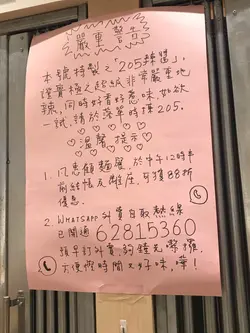 嚴重警告
本號特製之「205辣醬」
證實極之起紙非常嚴重地
辣,同時好香好惹味,如欲
一試,請於落單時揀205.
♡溫馨提示♡
♡ ♡ ♡ ♡ ♡ ♡ ♡
1. 凡惠顧麵餐,於中午12時半
前結帳及離座,可獲88折
優惠.
2. WHATSAPP外賣自取熱線
已開通 62815360
預早訂外賣,夠鐘先嚟攞
方便慳時間又好味,嘩!